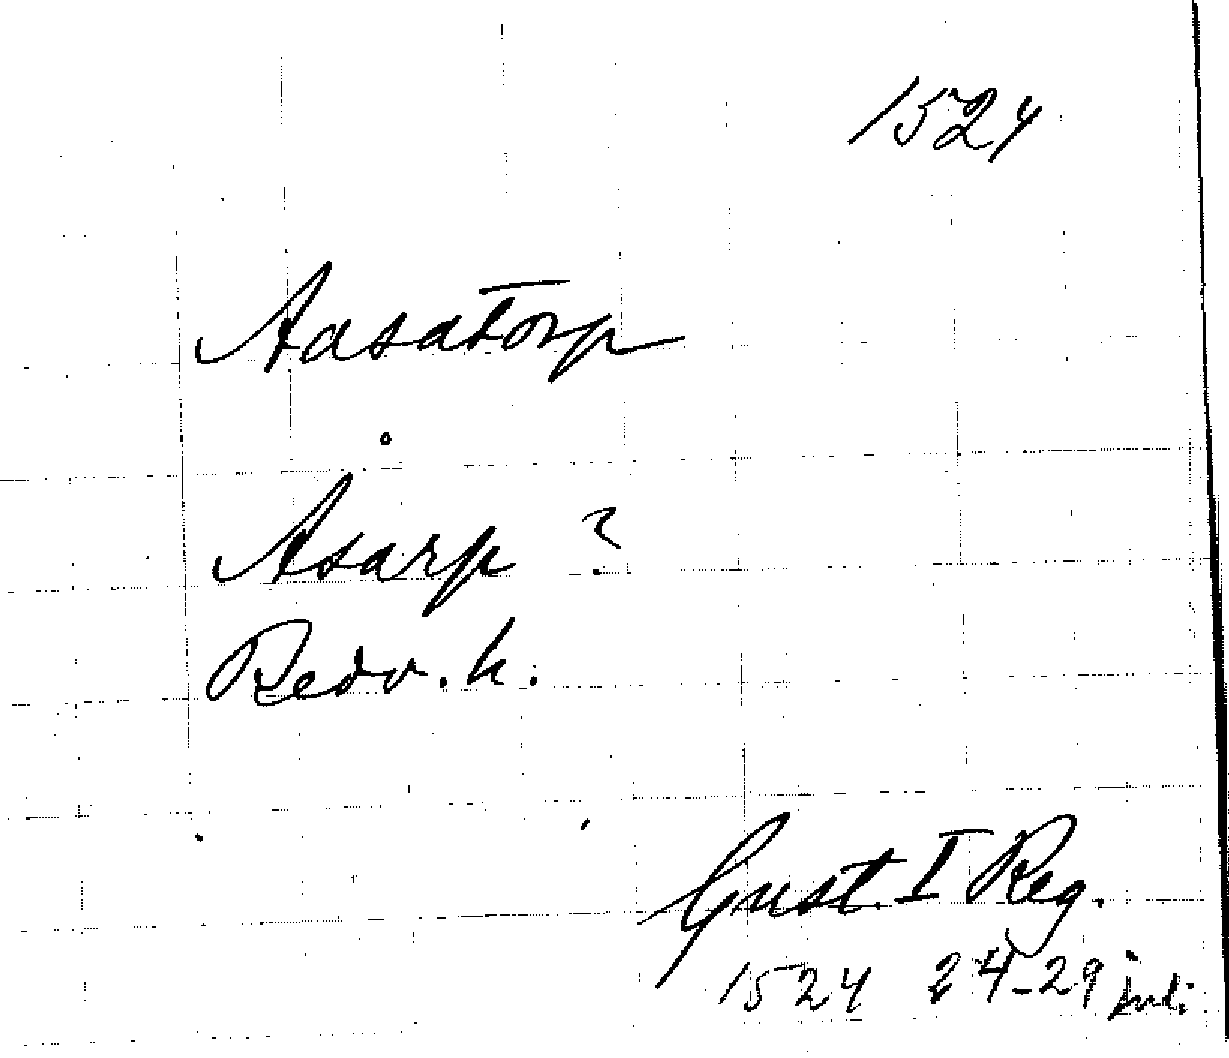 1524
Aasatorp
Åsarp ?
Redv. h.
Gust. I Reg.
1524 24-29 juli